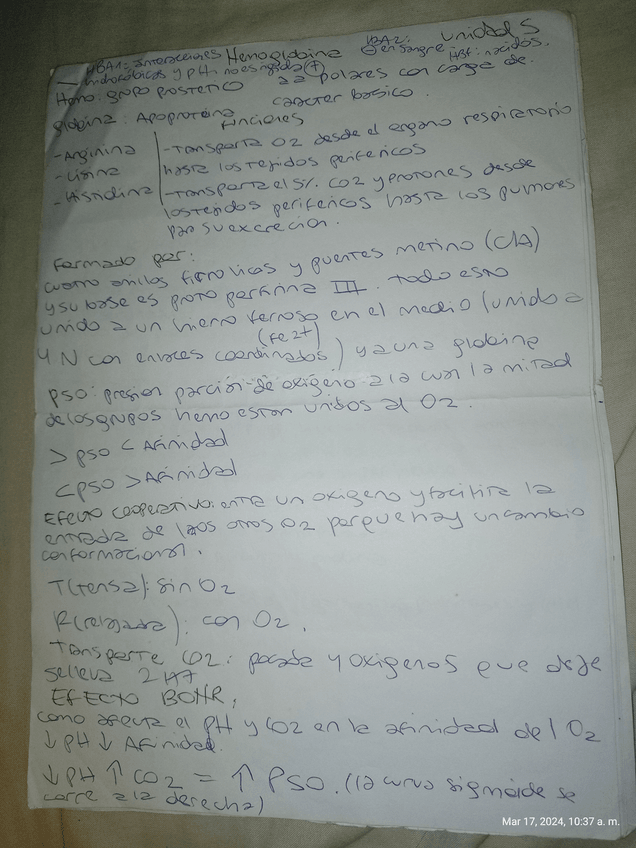 unidad 5
HBA1: interacciones Hemoglobina HBA2: en sangre HBF: nacidos.
hidrofóbicas y pH: no es rigida (+)
Hemo: grupo prostetico aa polares con carga de
caracter basico.
globina: Apoproteina
funciones
-Arginina -Transporta O2 desde el organo respiratorio
-Lisina hasta los tejidos perifericos
-Histidina -Transporta el 5% CO2 y protones desde
los tejidos perifericos hasta los pulmones
para su excrecion.
Formado por:
cuatro anillos pirrolicos y puentes metino (C/A)
y su base es proto porfirina III. todo esto
unido a un hierro ferroso en el medio (unido a
(Fe2+)
4 N con enlaces coordinados) y a una globina
P50: presion parcial de oxigeno a la cual la mitad
de los grupos hemo estan unidos al O2.
> p50 < Afinidad
< P50 > Afinidad
Efecto cooperativo: entra un oxigeno y facilita la
entrada de los otros O2 porque hay un cambio
conformacional.
T(tensa): sin O2
R(relajada): con O2.
Transporte CO2: por cada 4 oxigenos que deja
se lleva 2 H+
EFECTO BOHR:
como afecta el pH y CO2 en la afinidad del O2
↓ pH ↓ Afinidad.
↓ PH ↑ CO2 = ↑ P50. (la curva sigmoide se
corre a la derecha)
Mar 17, 2024, 10:37 a. m.